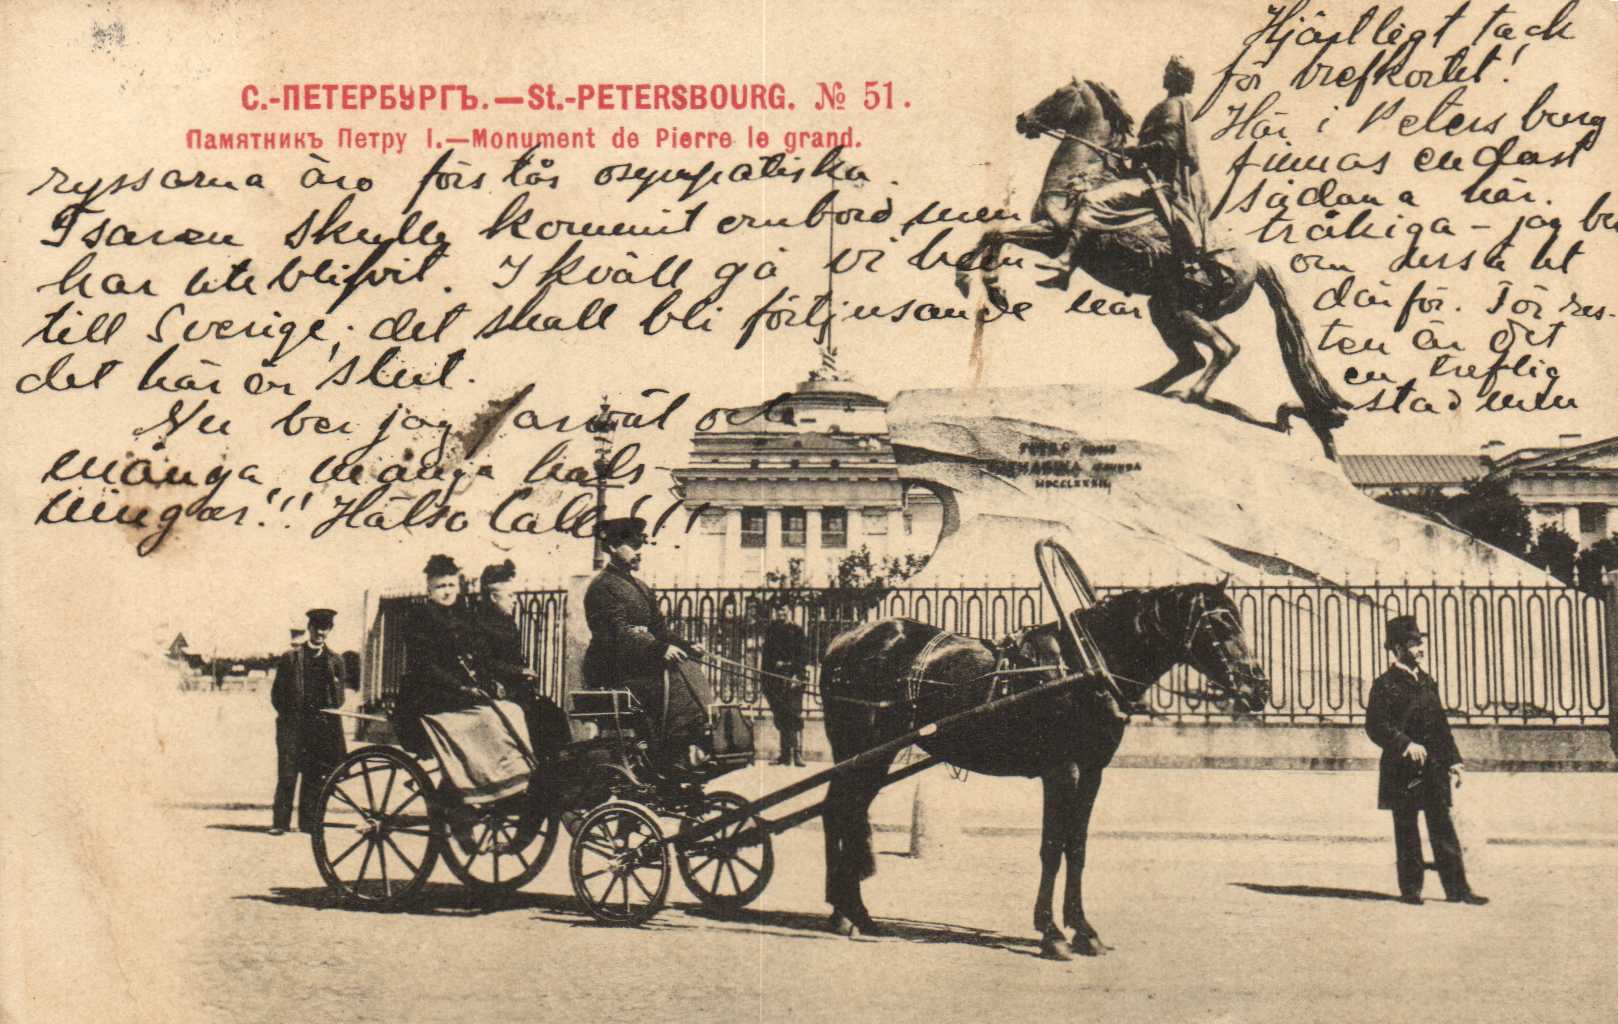 С.-ПЕТЕРБУРГЪ.—St.-PETERSBOURG. № 51.
Памятникъ Петру I.—Monument de Pierre le grand.
Hjärtligt tack
för brefkortet!
Här i Petersburg
finnas endast
sådana här.
tråkiga – jag ber
om ursäkt
därför. För res-
ten är det
en treflig
stad men
ryssarna äro förstås osympatiska.
Tsaren skulle kommit ombord men
har uteblifvit. I kväll gå vi hem-
till Sverige; det skall bli förtjusande när
det här är slut.
Nu ber jag farväl och
många, många häls-
ningar!!! Hälsa Calle!!!
PETRO
MDCCLXXXII